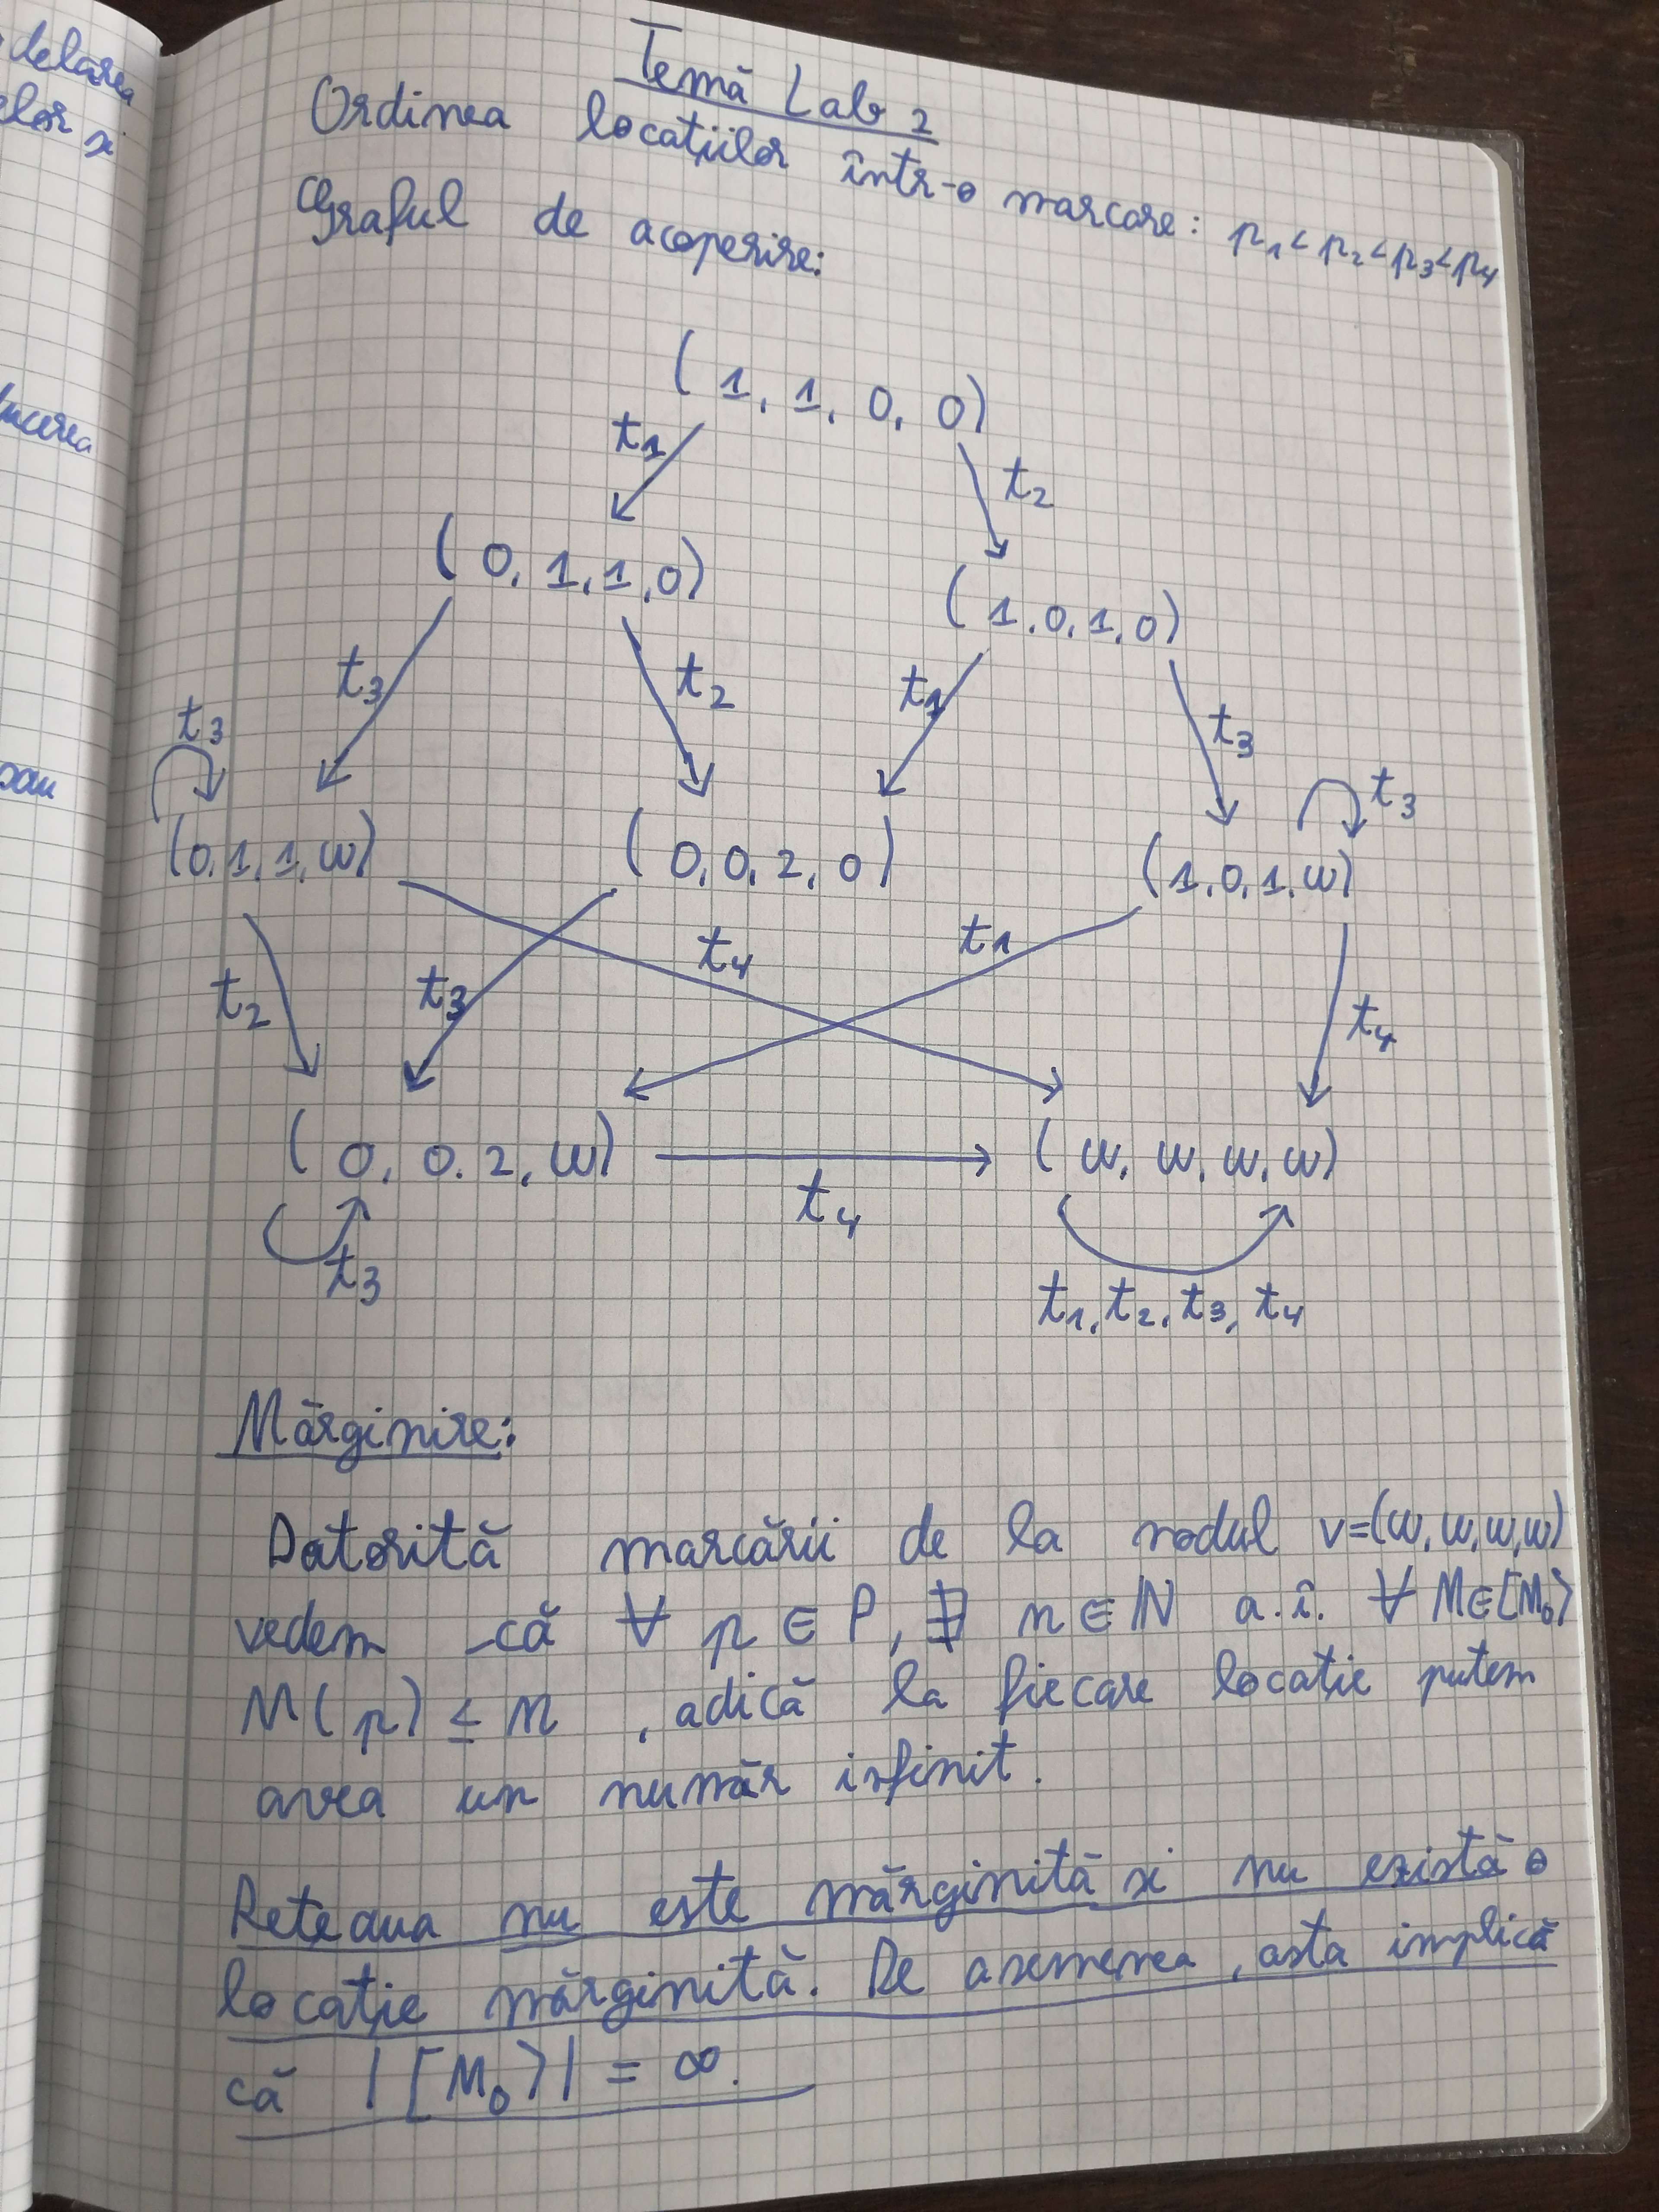 delarea
elor și
ducerea
sau
Temă Lab 2
Ordinea locațiilor într-o marcare: p1 < p2 < p3 < p4
Graful de acoperire:
(1, 1, 0, 0)
t1
t2
(0, 1, 1, 0)
(1, 0, 1, 0)
t3
t2
t1
t3
t3
t3
(0, 1, 1, ω)
(0, 0, 2, 0)
(1, 0, 1, ω)
t2
t3
t4
t1
t4
(0, 0. 2, ω)
(ω, ω, ω, ω)
t4
t3
t1, t2, t3, t4
Mărginire:
Datorită marcării de la nodul v=(ω, ω, ω, ω)
vedem că ∀ p ∈ P, ∄ n ∈ ℕ a.î. ∀ M∈[M0⟩
M(p) ≤ n, adică la fiecare locație putem
avea un număr infinit.
Rețeaua nu este mărginită și nu există o
locație mărginită. De asemenea, asta implică
că |[M0⟩| = ∞.